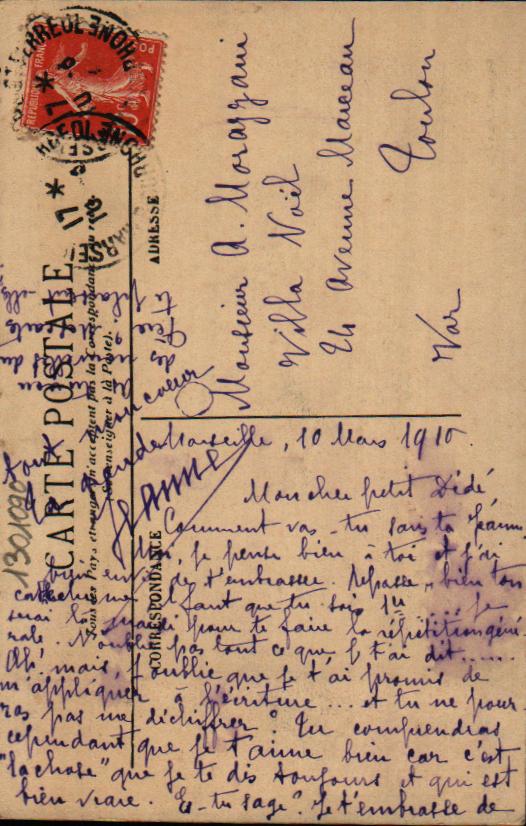 CARTE POSTALE
Tous les Pays étrangers n'acceptent pas la Correspondance au recto.
Se renseigner à la Poste.
CORRESPONDANCE
ADRESSE
Monsieur A. Morazzani
Villa Noël
Avenue Marceau
Toulon
Var
Marseille, 10 Mars 1910.
Mon cher petit Dédé,
Comment vas-tu sans ta Jeanne
je pense bien à toi et j'ai
bien envie de t'embrasser. Repasse bien ton
catéchisme il faut que tu sois 1er .... je
serai là mardi pour te faire la répétition géné-
rale. N'oublie pas tout ce que je t'ai dit.....
Ah! mais j'oublie que je t'ai promis de
m'appliquer à l'écriture... et tu ne pour-
ras pas me déchiffrer? Tu comprendras
cependant que je t'aime bien car c'est
"la chose" que je te dis toujours et qui est
bien vraie. Es-tu sage? Je t'embrasse de
tout mon coeur
Jeanne
1301090